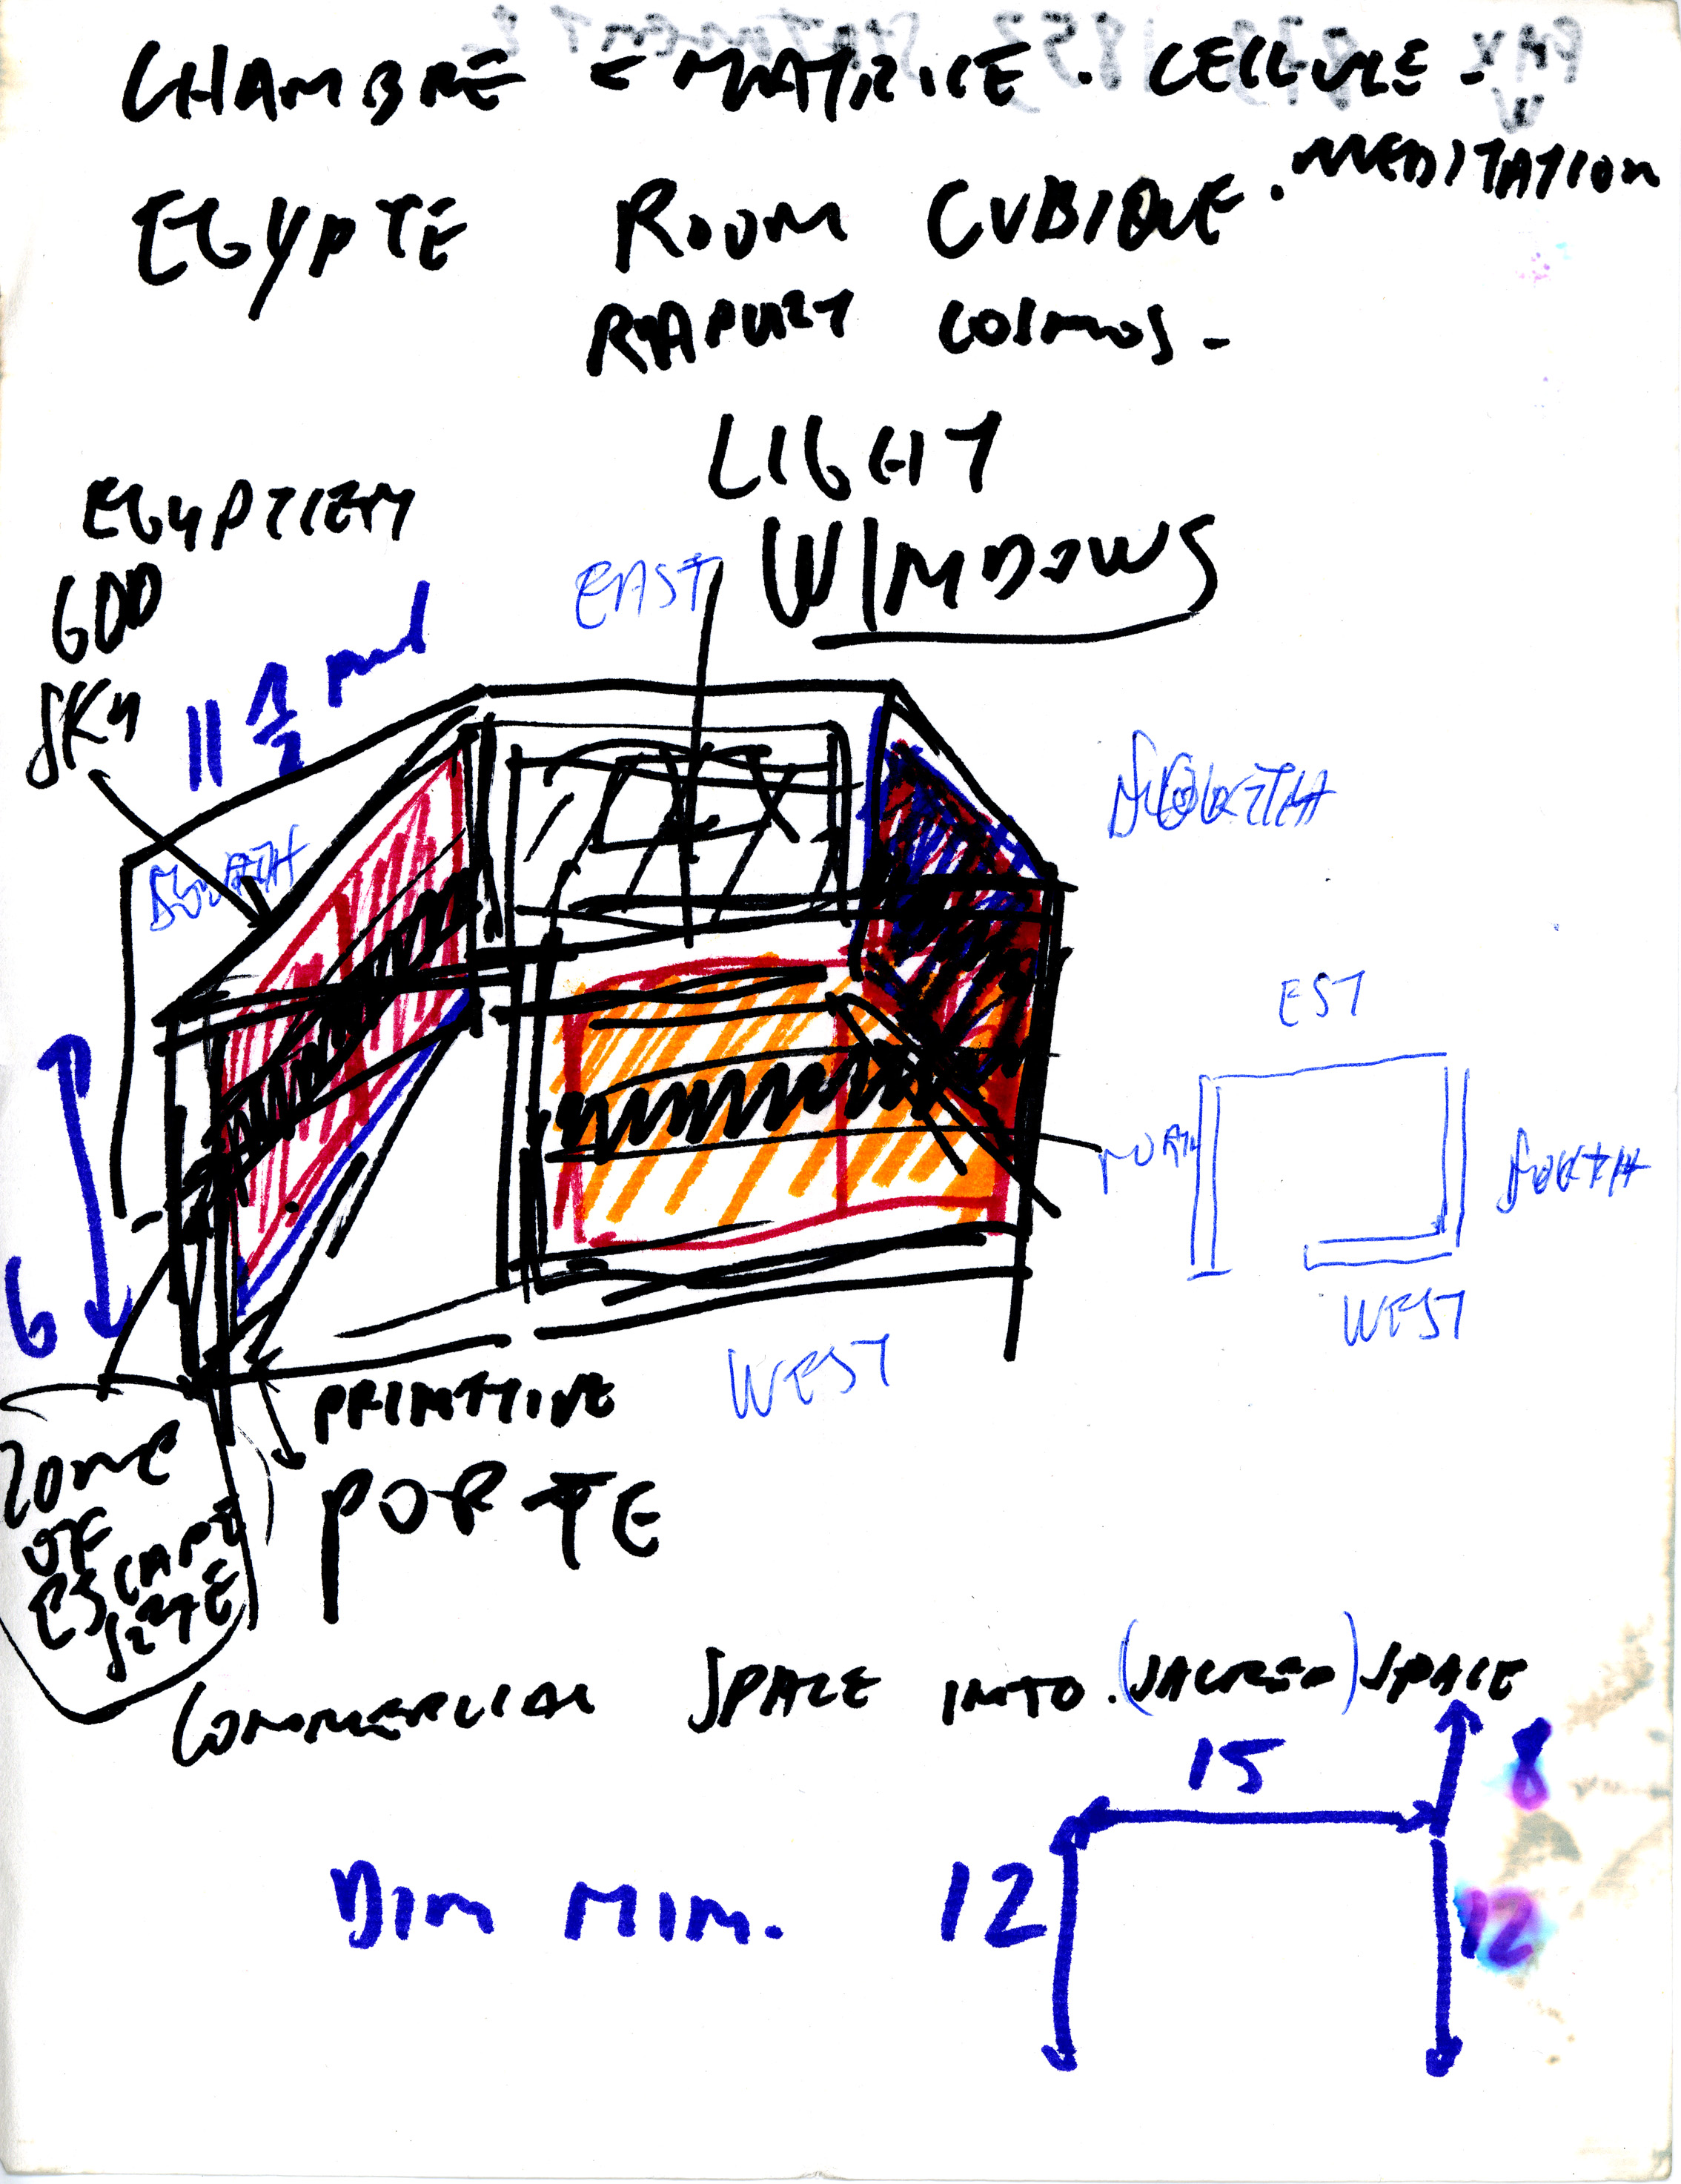 CHAMBRE = MATRICE. CELLULE -
. MEDITATION
EGYPTE ROOM CUBIQUE
RAPORT COSMOS -
LIGHT
WINDOWS
EGYPTIEN
GOD
SKY
EAST
11 1/2
SOUTH
EST
NORTH
SOUTH
WEST
6
WEST
PRIMITIVE
PORTE
ZONE
OF
ESCAPE
COMMERCIAL SPACE INTO (SACRED) SPACE
15
8
DIM MIM. 12
12